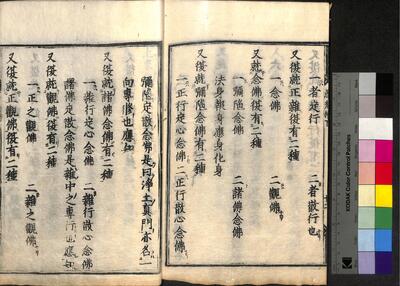 一者定行 二者散行也
又復就正雜復有二種
一念佛 二觀佛
又就念佛復有二種
一彌陀念佛 二諸佛念佛
法身報身應身化身
又復就彌陀念佛有二種
一正行定心念佛 二正行散心念佛
彌陀定散念佛是曰淨土眞門亦名一
向專修也應知
又復就諸佛念佛有二種
一雜行定心念佛 二雜行散心念佛
諸佛定散念佛是雜中之專行也應知
又復就觀佛復有二種
一正之觀佛 二雜之觀佛
又復就正觀佛復有二種
KODAK Color Control Patches